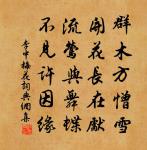 群木方憎雪
開花長在獻
流鶯與舞蝶
不見許因緣
李中梅花詞典網集